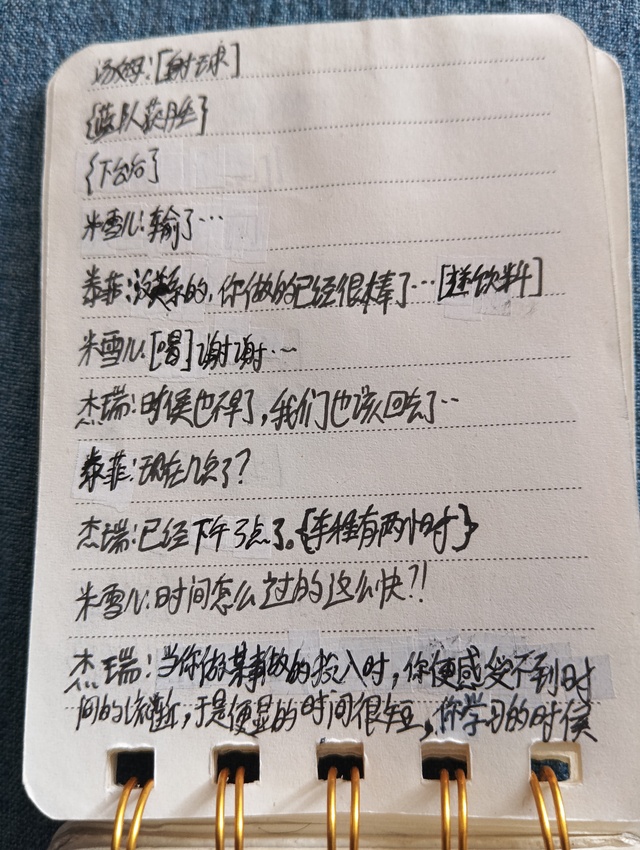 汤姆:[射球]
{蓝队获胜}
{下台后}
米雪儿:输了…
泰菲:没关系的,你做的已经很棒了…[递饮料]
米雪儿:[喝]谢谢…
杰瑞:时候也不早了,我们也该回去了…
泰菲:现在几点了?
杰瑞:已经下午3点了。{车程有两小时}
米雪儿:时间怎么过的这么快?!
杰瑞:当你做某事做的投入时,你便感受不到时
间的流逝,于是便显的时间很短,你学习的时候